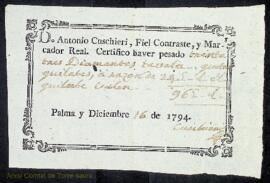 D. Antonio Cuschieri, Fiel Contraste, y Mar-
cador Real. Certifico haver pesado
tres Diamantes
quilates, à razon de 24,5 L el
quilate
965 L
Palma, y Diciembre 16 de 1794.
Cuschieri
Arxiu Comtal de Torre-saura